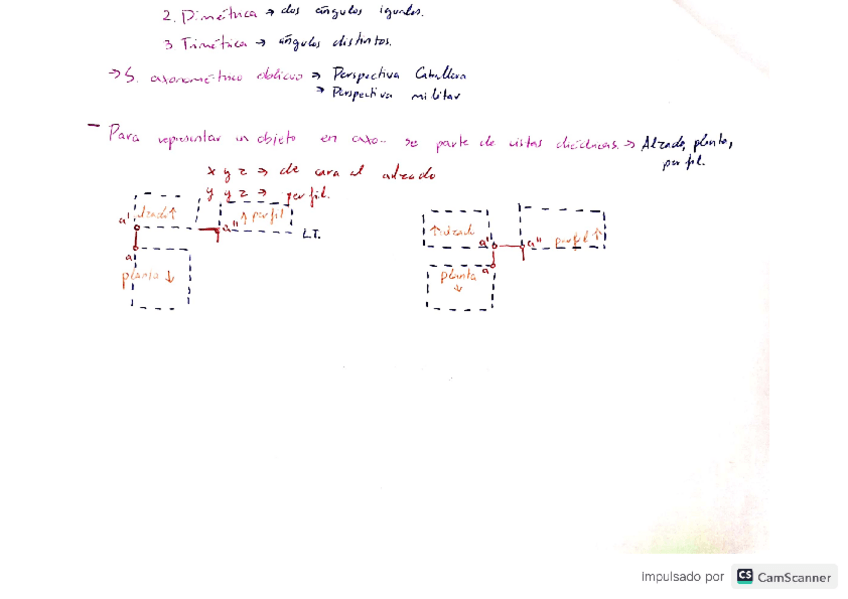 2. Dimétrica → dos ángulos iguales.
3 Trimétrica → ángulos distintos.
→ S. axonométrico oblicuo → Perspectiva Caballera
→ Perspectiva militar
- Para representar un objeto en axo.. se parte de vistas diédricas. → Alzado, planta,
perfil.
x y z → de cara al alzado
y z → perfil.
a' alzado ↑ a'' ↑ perfil L.T.
a
planta ↓
↑ alzado a' a'' perfil ↑
planta a
↓
Impulsado por CS CamScanner